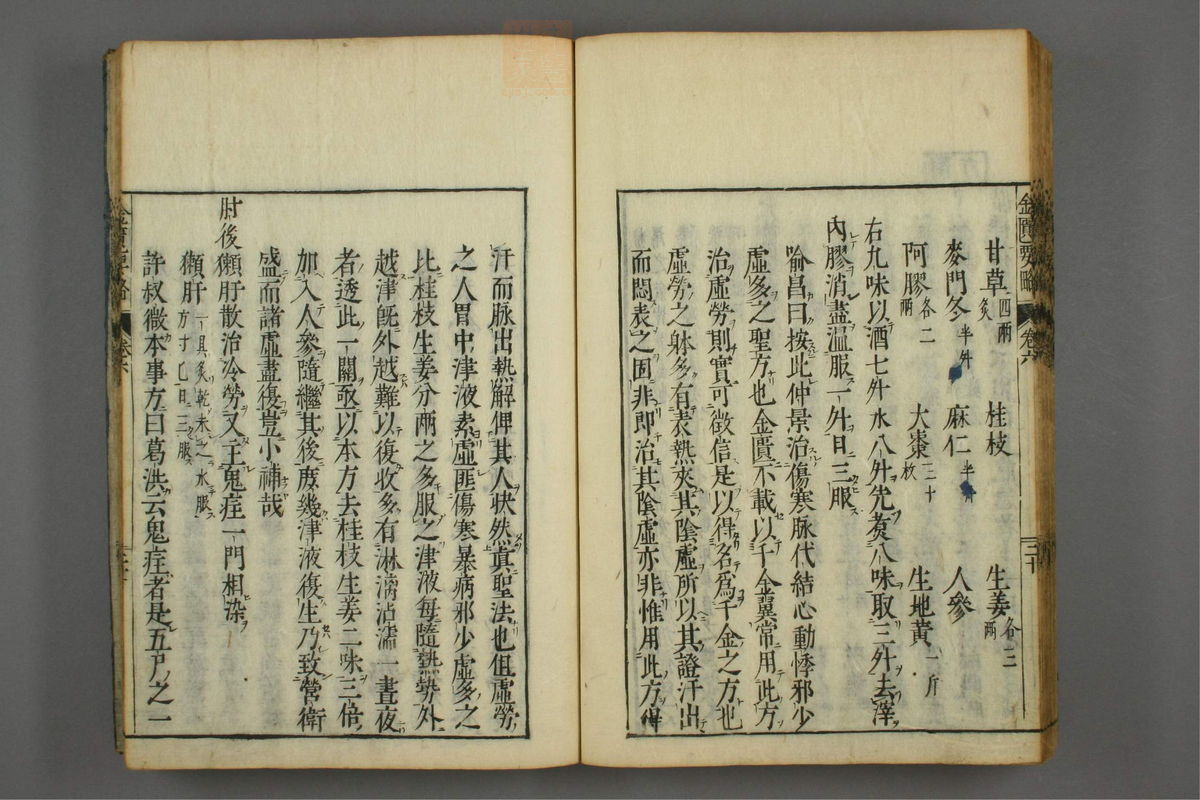 金匱要略 卷六 二十
甘草四兩炙 桂枝 生姜各三兩
麥門冬半升 麻仁半升 人參
阿膠各二兩 大棗三十枚 生地黃一斤
右九味以酒七升水八升先煑八味取三升去滓
內膠消盡溫服一升日三服
喻昌曰按此仲景治傷寒脉代結心動悸邪少
虛多之聖方也金匱不載以千金翼常用此方
治虛勞則實可徵信是以得名爲千金之方也
虛勞之躰多有表熱夾其陰虛所以其證汗出
而悶表之固非即治其陰虛亦非惟用此方得
汗而脉出熱解俾其人快然眞聖法也但虛勞
之人胃中津液素虛匪傷寒暴病邪少虛多之
比桂枝生姜分兩之多服之津液每隨熱勢外
越津旣外越難以復收多有淋漓沾濡一晝夜
者透此一關亟以本方去桂枝生姜二味三倍
加入人參隨繼其後庶幾津液復生乃致營衛
盛而諸虛盡復豈小補哉
肘後獺肝散治冷勞又主鬼疰一門相染
獺肝一具炙乾末之水服方寸匕日三服
許叔微本事方曰葛洪云鬼疰者是五尸之一
金匱要略 卷六